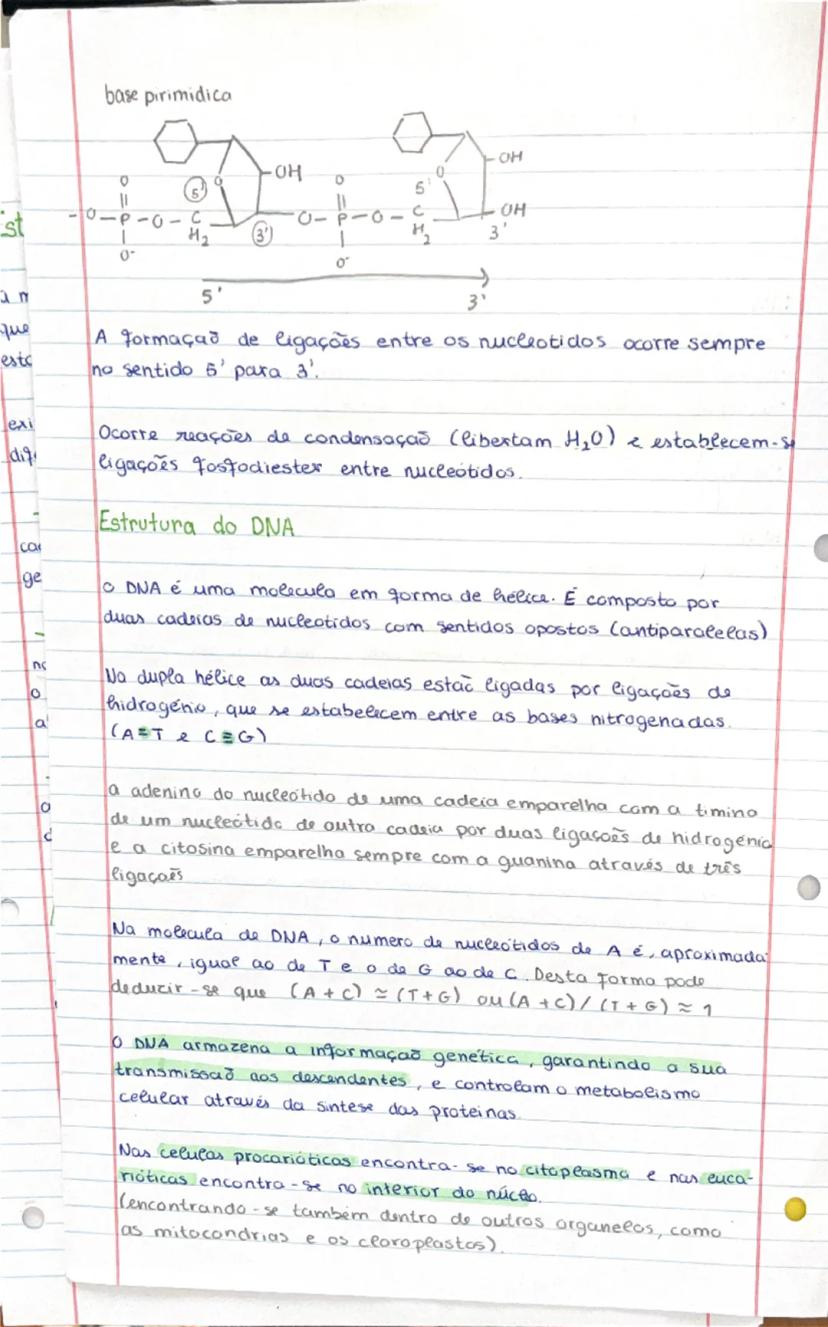 base pirimidica
OH
OH
O O
5' O 5' O
-O-P-O-C O-P-O-C OH
H2 3' H2 3'
O- O-
5' 3'
A formação de ligações entre os nucleotidos ocorre sempre
no sentido 5' para 3'.
Ocorre reações de condensação (libertam H2O) e establecem-se
ligações fosfodiester entre nucleótidos.
Estrutura do DNA
O DNA é uma molecula em forma de hélice. É composto por
duas cadeias de nucleotidos com sentidos opostos (antiparalelas)
Na dupla hélice as duas cadeias estão ligadas por ligações de
hidrogénio, que se estabelecem entre as bases nitrogenadas.
(A=T e C≡G)
a adenina do nucleótido de uma cadeia emparelha com a timina
de um nucleótido de outra cadeia por duas ligações de hidrogénio
e a citosina emparelha sempre com a guanina através de três
ligações
Na molecula de DNA, o numero de nucleótidos de A é, aproximada
mente, igual ao de T e o de G ao de C. Desta forma pode
deduzir-se que (A+C) ≃ (T+G) ou (A+C)/(T+G) ≈ 1
O DNA armazena a informação genética, garantindo a sua
transmissão aos descendentes, e controlam o metabolismo
celular através da sintese das proteinas.
Nas celulas procarióticas encontra-se no citoplasma e nas euca-
rióticas encontra-se no interior do núcleo.
(encontrando-se também dentro de outros organelos, como
as mitocondrias e os cloroplastos).